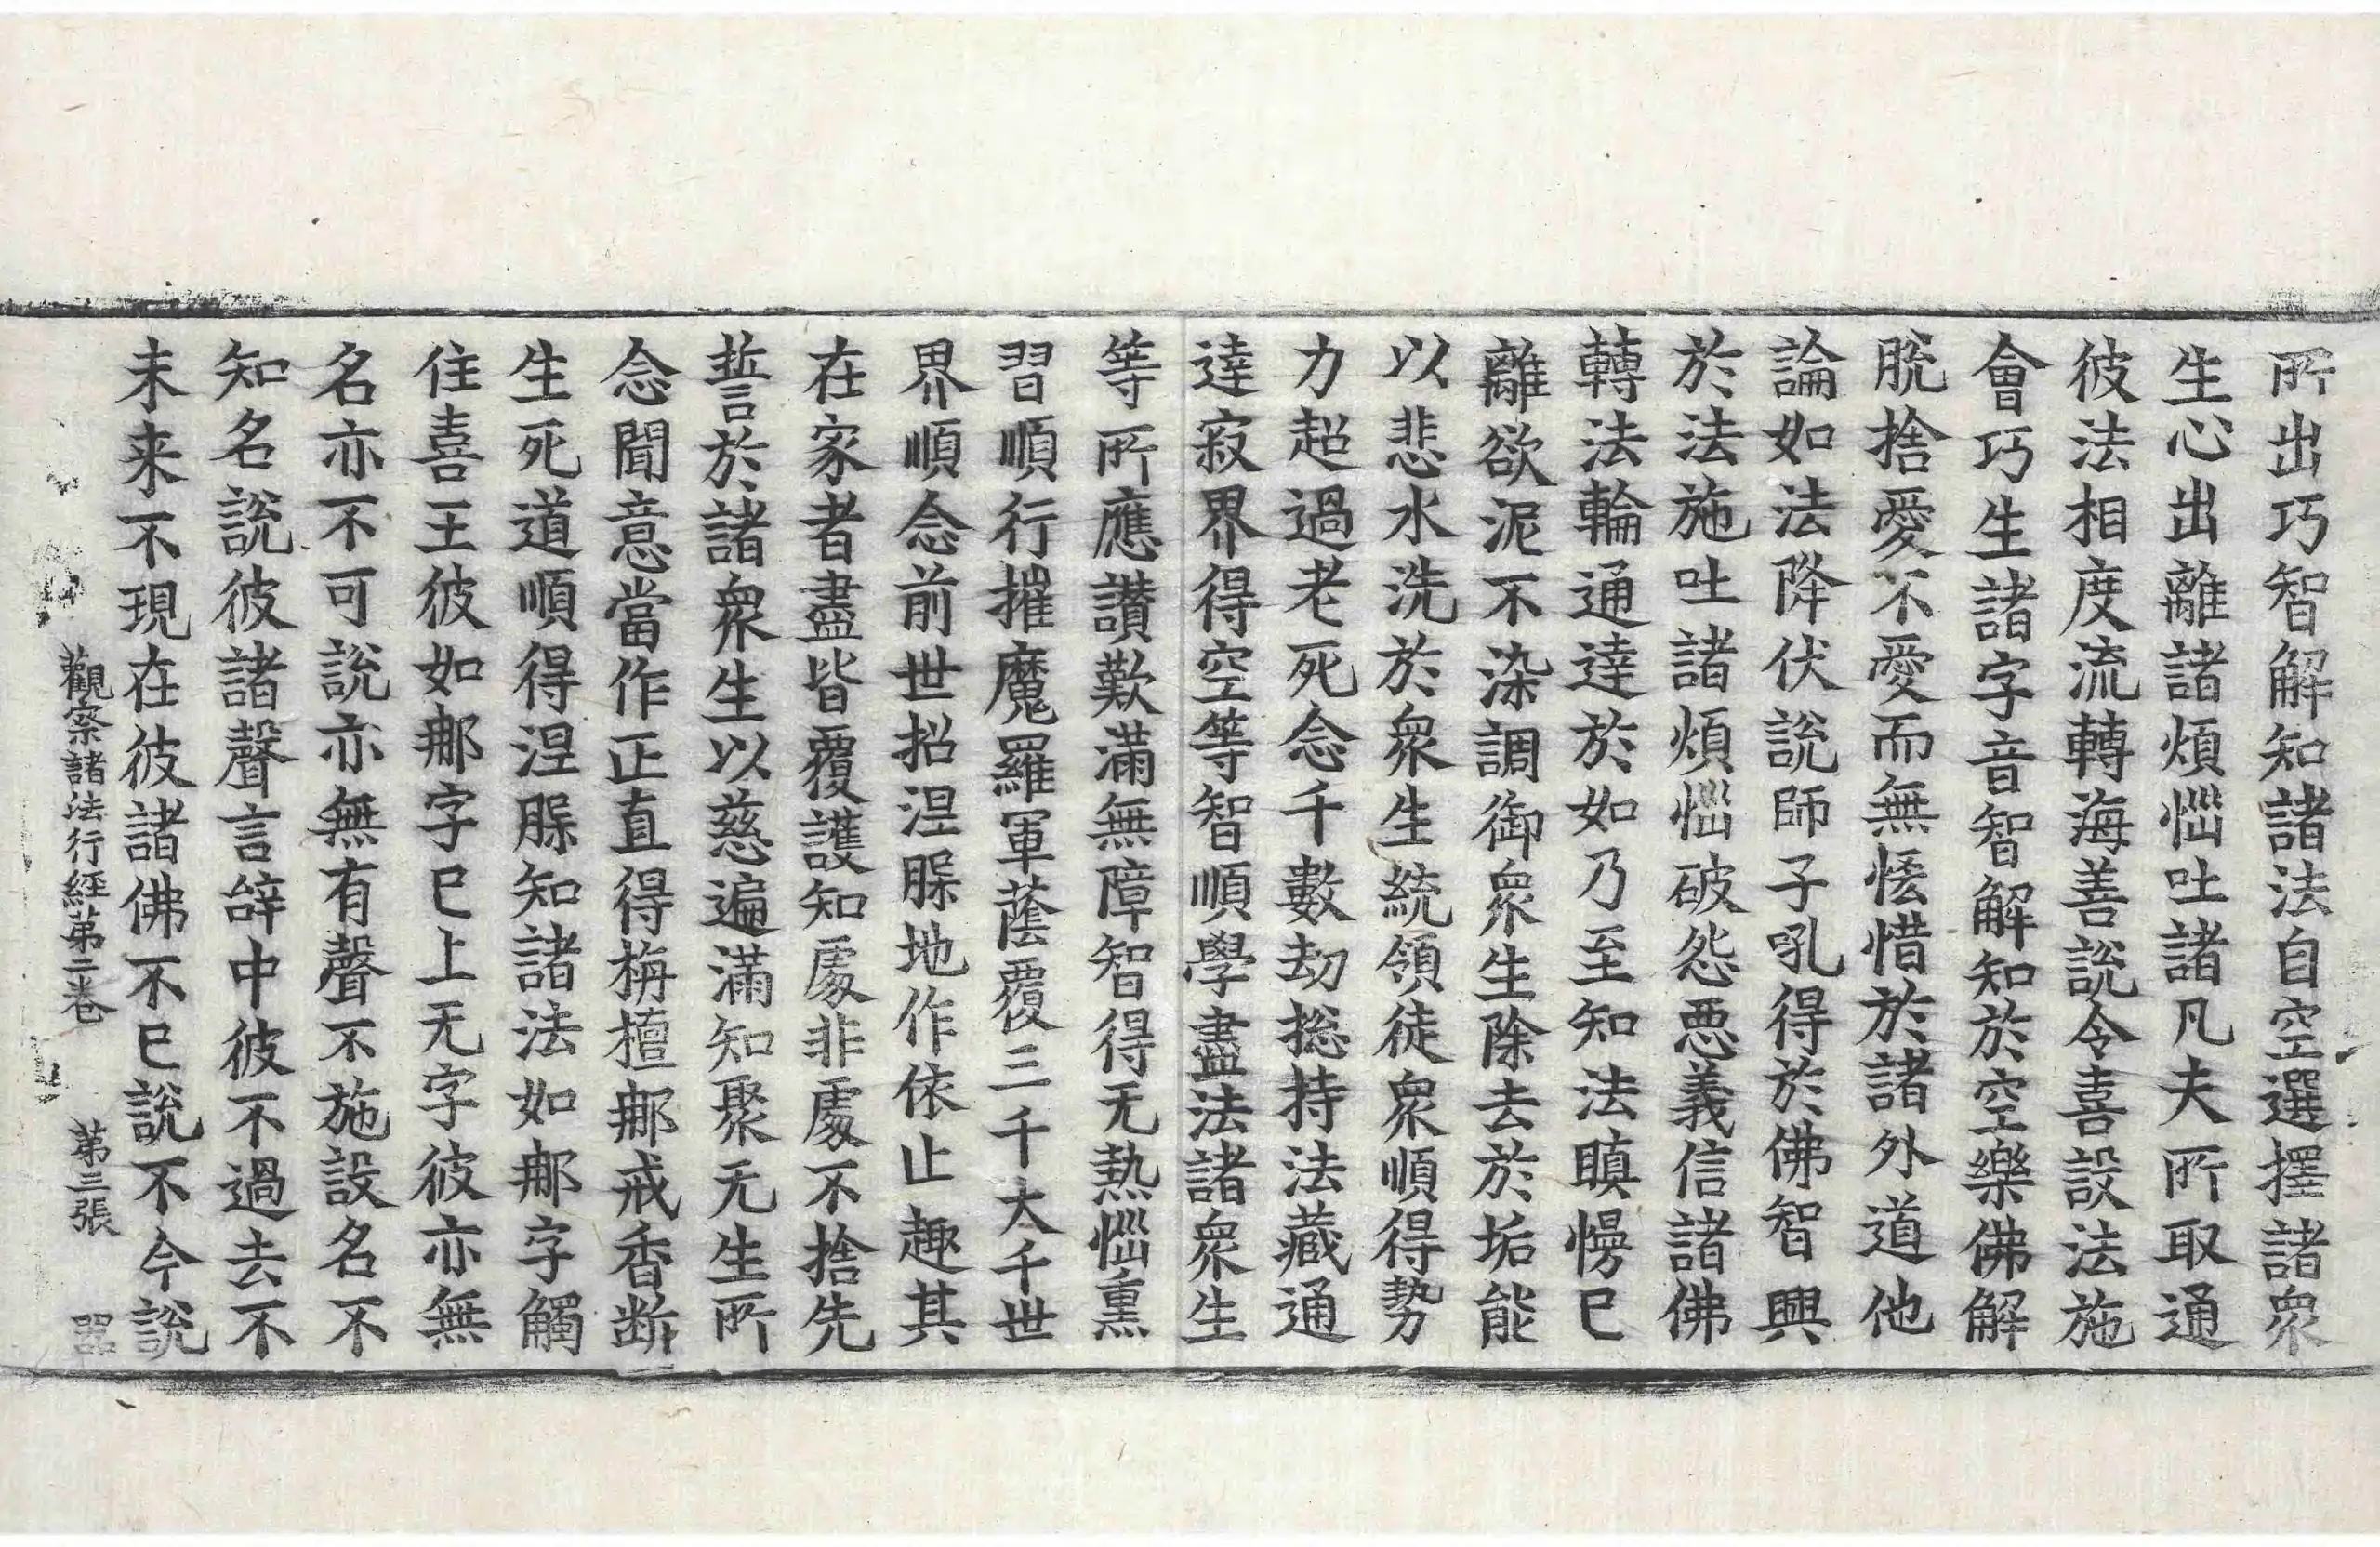 所出巧智解知諸法自空選擇諸衆
生心出離諸煩惱吐諸凡夫所取通
彼法相度流轉海善說令喜設法施
會巧生諸字音智解知於空樂佛解
脫捨愛不愛而無恡惜於諸外道他
論如法降伏說師子吼得於佛智興
於法施吐諸煩惱破怨惡義信諸佛
轉法輪通達於如乃至知法瞋慢已
離欲泥不染調御衆生除去於垢能
以悲水洗於衆生統領徒衆順得勢
力超過老死念千數劫揔持法藏通
達寂界得空等智順學盡法諸衆生
等所應讚歎滿無障智得无熱惱熏
習順行摧魔羅軍蔭覆三千大千世
界順念前世招涅脲地作依止趣其
在家者盡皆覆護知處非處不捨先
誓於諸衆生以慈遍滿知聚无生所
念聞意當作正直得栴檀郍戒香断
生死道順得涅脲知諸法如郍字觸
住喜王彼如郍字已上无字彼亦無
名亦不可說亦無有聲不施設名不
知名說彼諸聲言辝中彼不過去不
未来不現在彼諸佛不已說不今說
觀察諸法行經苐二卷 苐三張 器